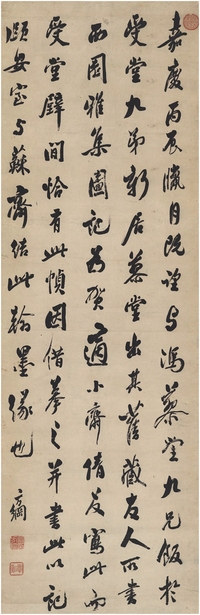 嘉慶丙辰臘月既望与馮慕堂九兄飯於
受堂九弟新居慕堂出其舊藏友人所書
西園雅集圖記為賀適小齋倩友寫此而
受堂壁間恰有此幀因借摹之并書此以記
頤安室与蘇齋結此翰墨緣也
方綱